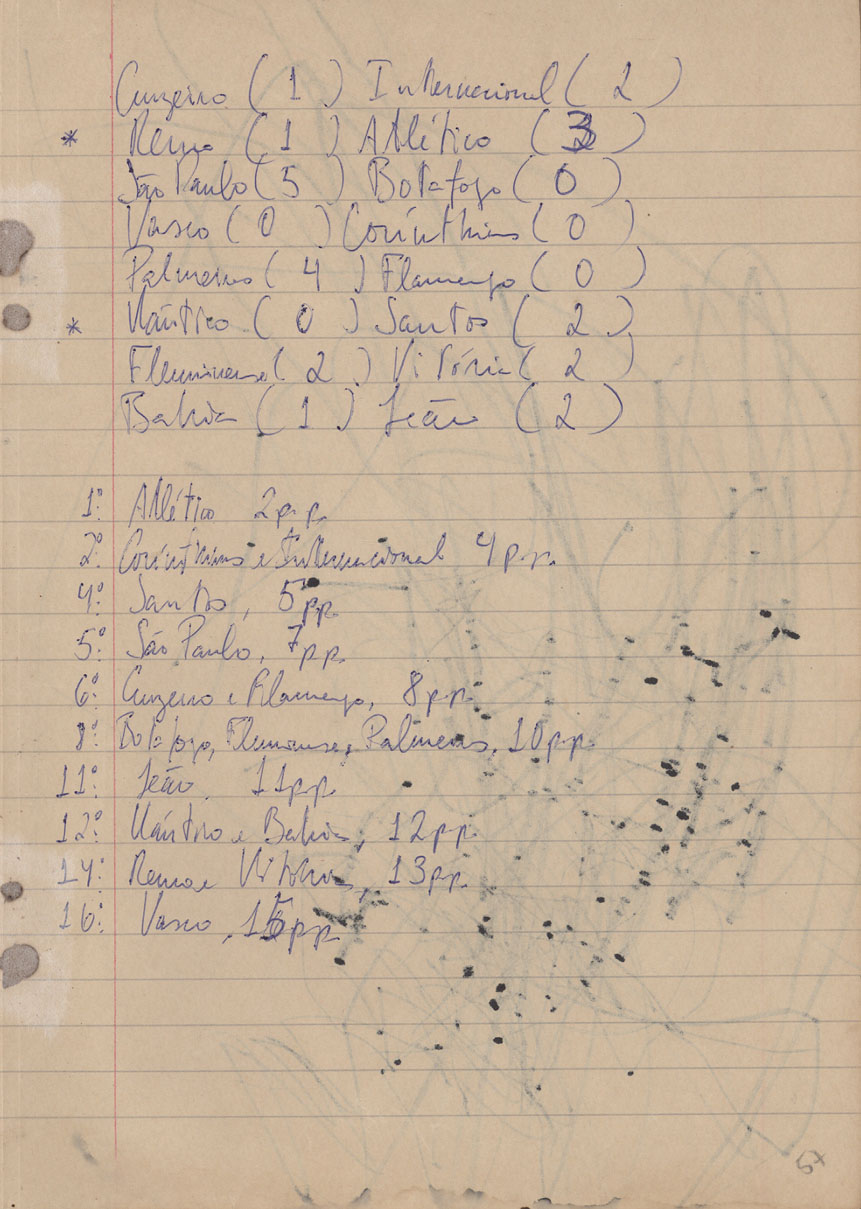 Cruzeiro ( 1 ) Internacional ( 2 )
* Remo ( 1 ) Atlético ( 3 )
São Paulo ( 5 ) Botafogo ( 0 )
Vasco ( 0 ) Corínthians ( 0 )
Palmeiras ( 4 ) Flamengo ( 0 )
* Náutico ( 0 ) Santos ( 2 )
Fluminense ( 2 ) Vitória ( 2 )
Bahia ( 1 ) Leão ( 2 )
1º: Atlético 2p.p.
2º: Corínthians e Internacional 4p.p.
4º: Santos, 5pp.
5º: São Paulo, 7p.p.
6º: Cruzeiro e Flamengo, 8p.p.
8º: Botafogo, Fluminense, Palmeiras, 10p.p.
11º: Leão, 11p.p.
12º: Náutico e Bahia, 12pp.
14º: Remo e Vitória, 13p.p.
16º: Vasco, 15p.p.
57